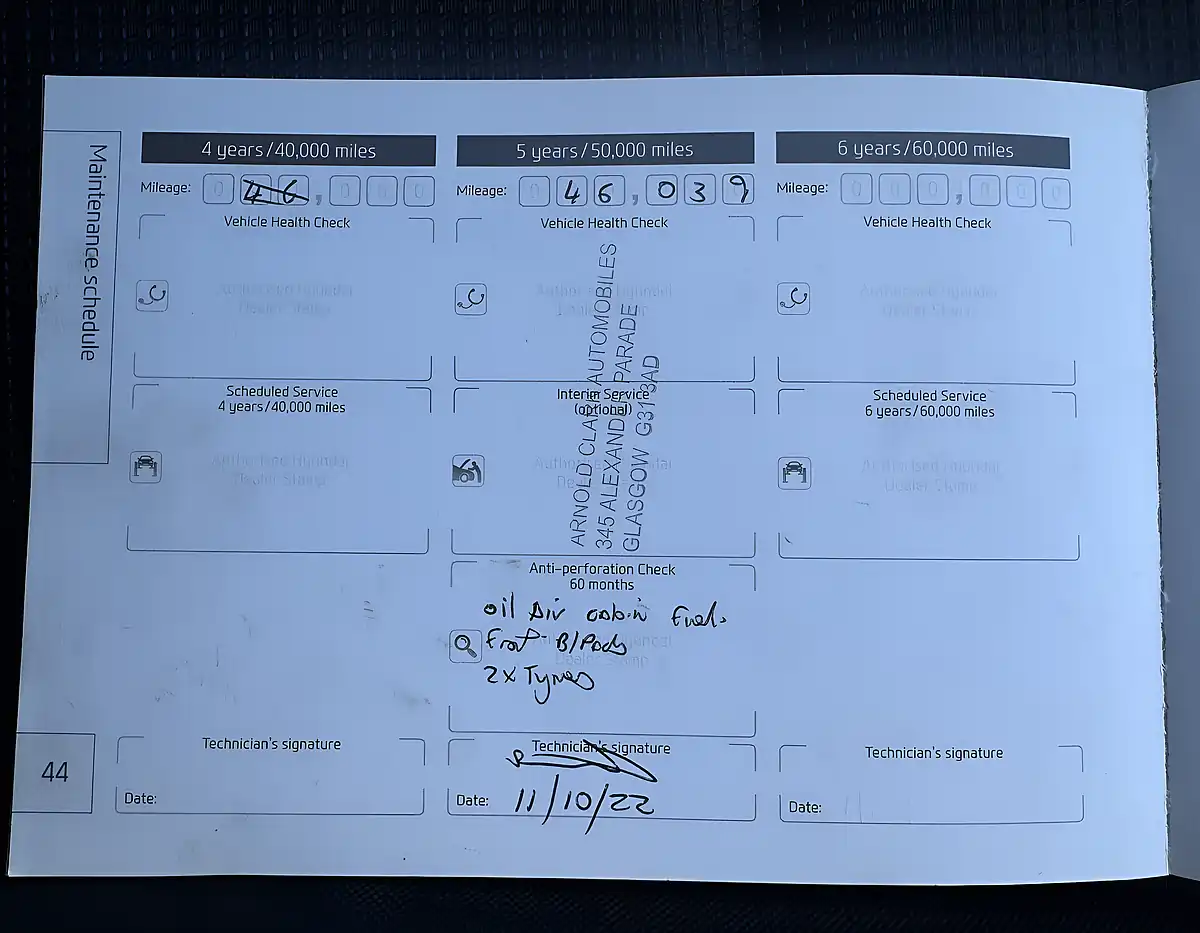 Maintenance schedule
4 years/40,000 miles
Mileage: 46,000
Vehicle Health Check
Authorised Hyundai
Dealer Stamp
Scheduled Service
4 years/40,000 miles
Authorised Hyundai
Dealer Stamp
Technician's signature
Date:
5 years/50,000 miles
Mileage: 046,039
Vehicle Health Check
Authorised Hyundai
Dealer Stamp
Interim Service
(optional)
Authorised Hyundai
Dealer Stamp
ARNOLD CLARK AUTOMOBILES
345 ALEXANDRA PARADE
GLASGOW G31 3AD
Anti-perforation Check
60 months
oil Air cabin Fuel.
Front B/Pads
2x Tyres
Technician's signature
Date: 11/10/22
6 years/60,000 miles
Mileage: 000,000
Vehicle Health Check
Authorised Hyundai
Dealer Stamp
Scheduled Service
6 years/60,000 miles
Authorised Hyundai
Dealer Stamp
Technician's signature
Date:
44